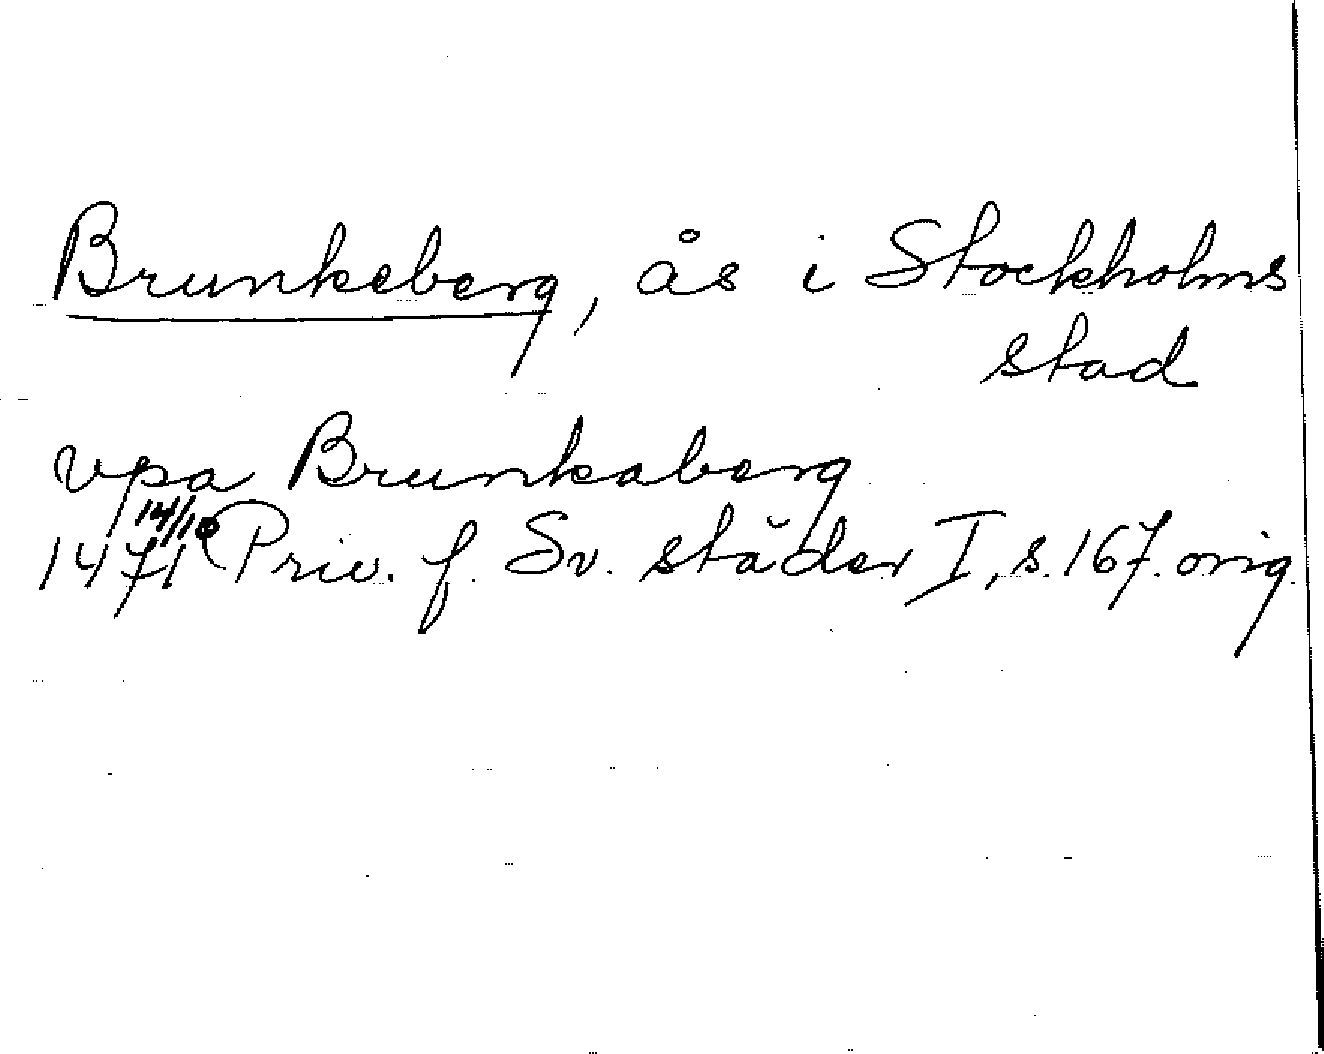 Brunkeberg, ås i Stockholms
stad
vpa Brunkaberg
1471 14/10 Priv. f. Sv. städer I, s. 167. orig.